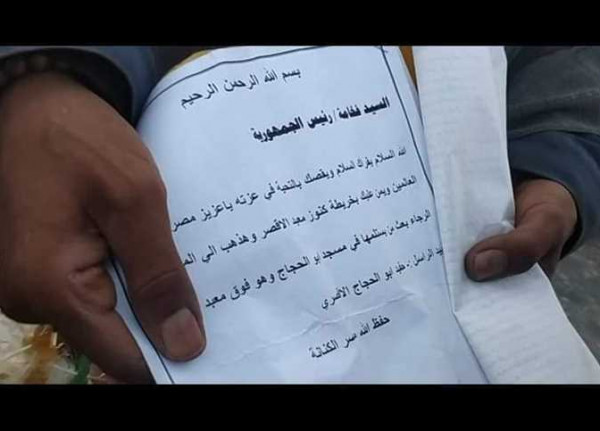 بسم الله الرحمن الرحيم
السيد فخامة / رئيس الجمهورية
الله السلام يقراك اسلام ويخصك بالتحية في عزته ياعزيز مصر
العالمين ويمن عليك بخريطة كنوز معبد الاقصر وهذهب الي
الرجاء بعث من يستلمها في مسجد ابو الحجاج وهو فوق معبد
الراسل :- حفيد ابو الحجاج الاقصري
حفظ الله مصر الكنانة